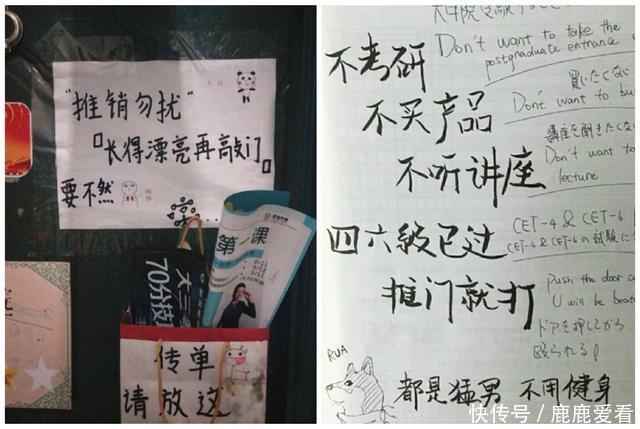 "推销勿扰"
『长得漂亮再敲门』
要不然
第一课
大三
70分技
传单
请放这
不考研
Don't want to take the
postgraduate entrance
買いたくない
不买产品
Dont want to bu
講座を聞きたくな
不听讲座
Don't want to
lecture
四六級已过
CET-4 & CET-6
CET-4 & CET-6の試験に
推门就打
Push the door a
U will be beat
ドアを押してから
殴られる!
RUA
都是猛男 不用健身
快传号/鹿鹿爱看